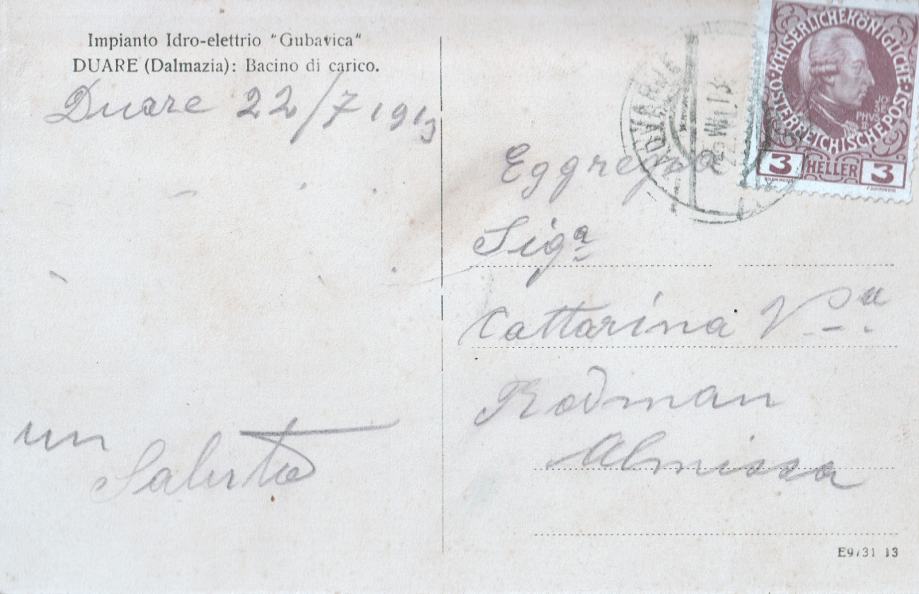 Impianto Idro-elettrio "Gubavica"
DUARE (Dalmazia): Bacino di carico.
Duare 22/7 1913
un
Saluto
ZADVARJE
22.VII.13
KAISERLICHEKÖNIGLICHE
ÖSTERREICHISCHEPOST
3 HELLER 3
Eggregia
Sigª
Cattarina Vª
Rodman
Almissa
E9731 13